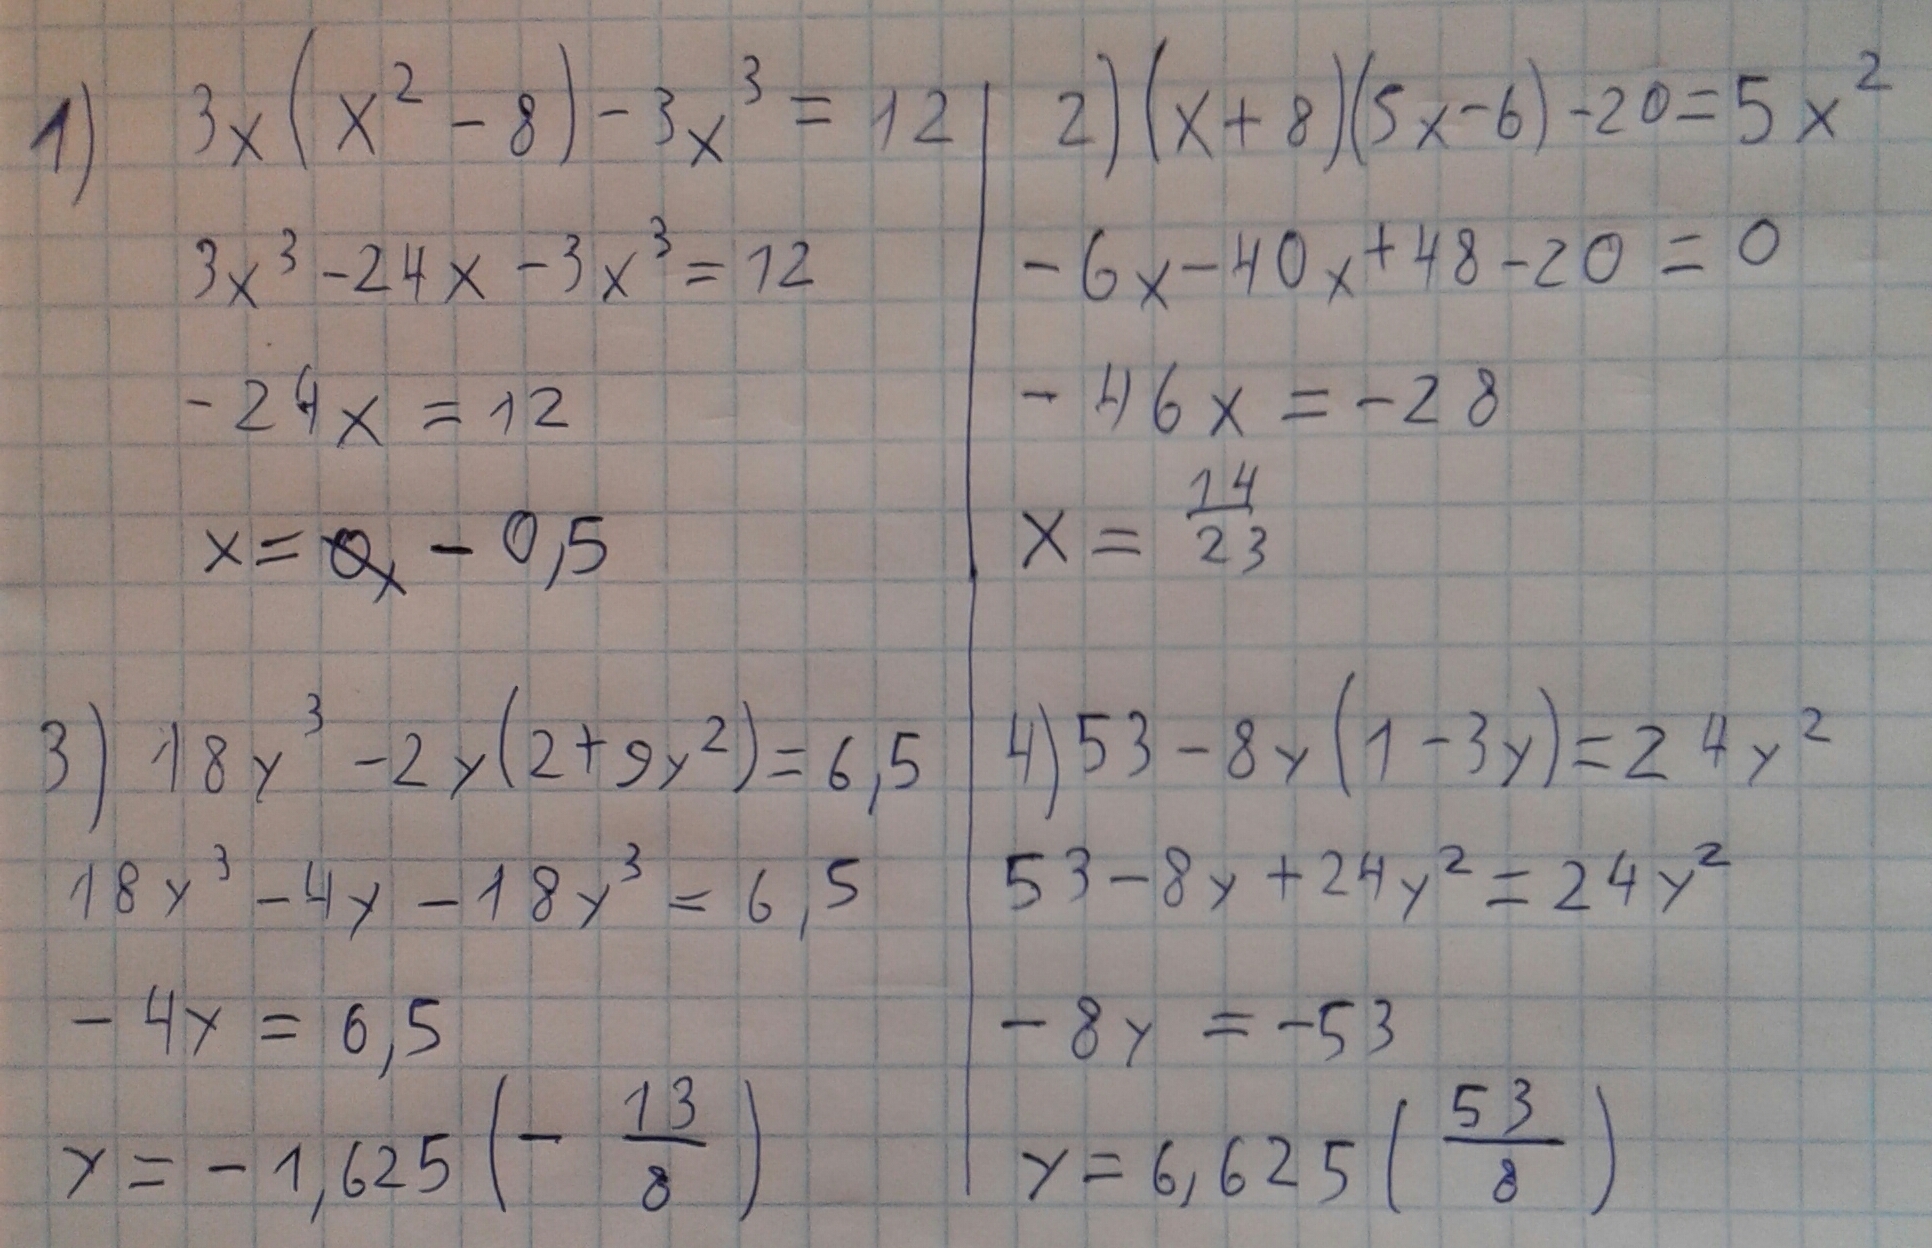 1) 3x(x² - 8) - 3x³ = 12
3x³ - 24x - 3x³ = 12
-24x = 12
x = - 0,5
2) (x + 8)(5x - 6) - 20 = 5x²
- 6x - 40x + 48 - 20 = 0
- 46x = -28
x = 14/23
3) 18y³ - 2y(2 + 9y²) = 6,5
18y³ - 4y - 18y³ = 6,5
- 4y = 6,5
y = - 1,625 (- 13/8)
4) 53 - 8y(1 - 3y) = 24y²
53 - 8y + 24y² = 24y²
- 8y = -53
y = 6,625 (53/8)